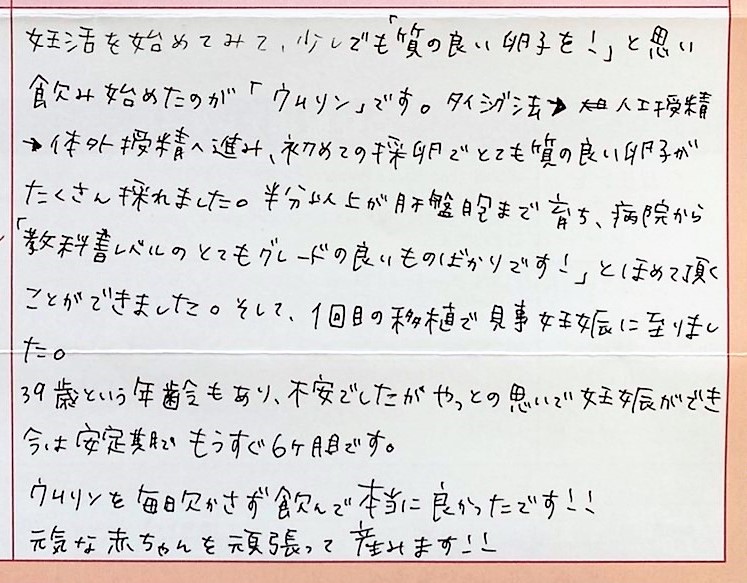 妊活を始めてみて、少しでも「質の良い卵子を!」と思い
飲み始めたのが「ウムリン」です。タイミング法→人工授精
→体外授精へ進み、初めての採卵でとても質の良い卵子が
たくさん採れました。半分以上が胚盤胞まで育ち、病院から
「教科書レベルのとてもグレードの良いものばかりです!」とほめて頂く
ことができました。そして、1回目の移植で見事妊娠に至りまし
た。
39歳という年齢もあり、不安でしたがやっとの思いで妊娠ができ
今は安定期でもうすぐ6ヶ月目です。
ウムリンを毎日欠かさず飲んで本当に良かったです!!
元気な赤ちゃんを頑張って産みます!!